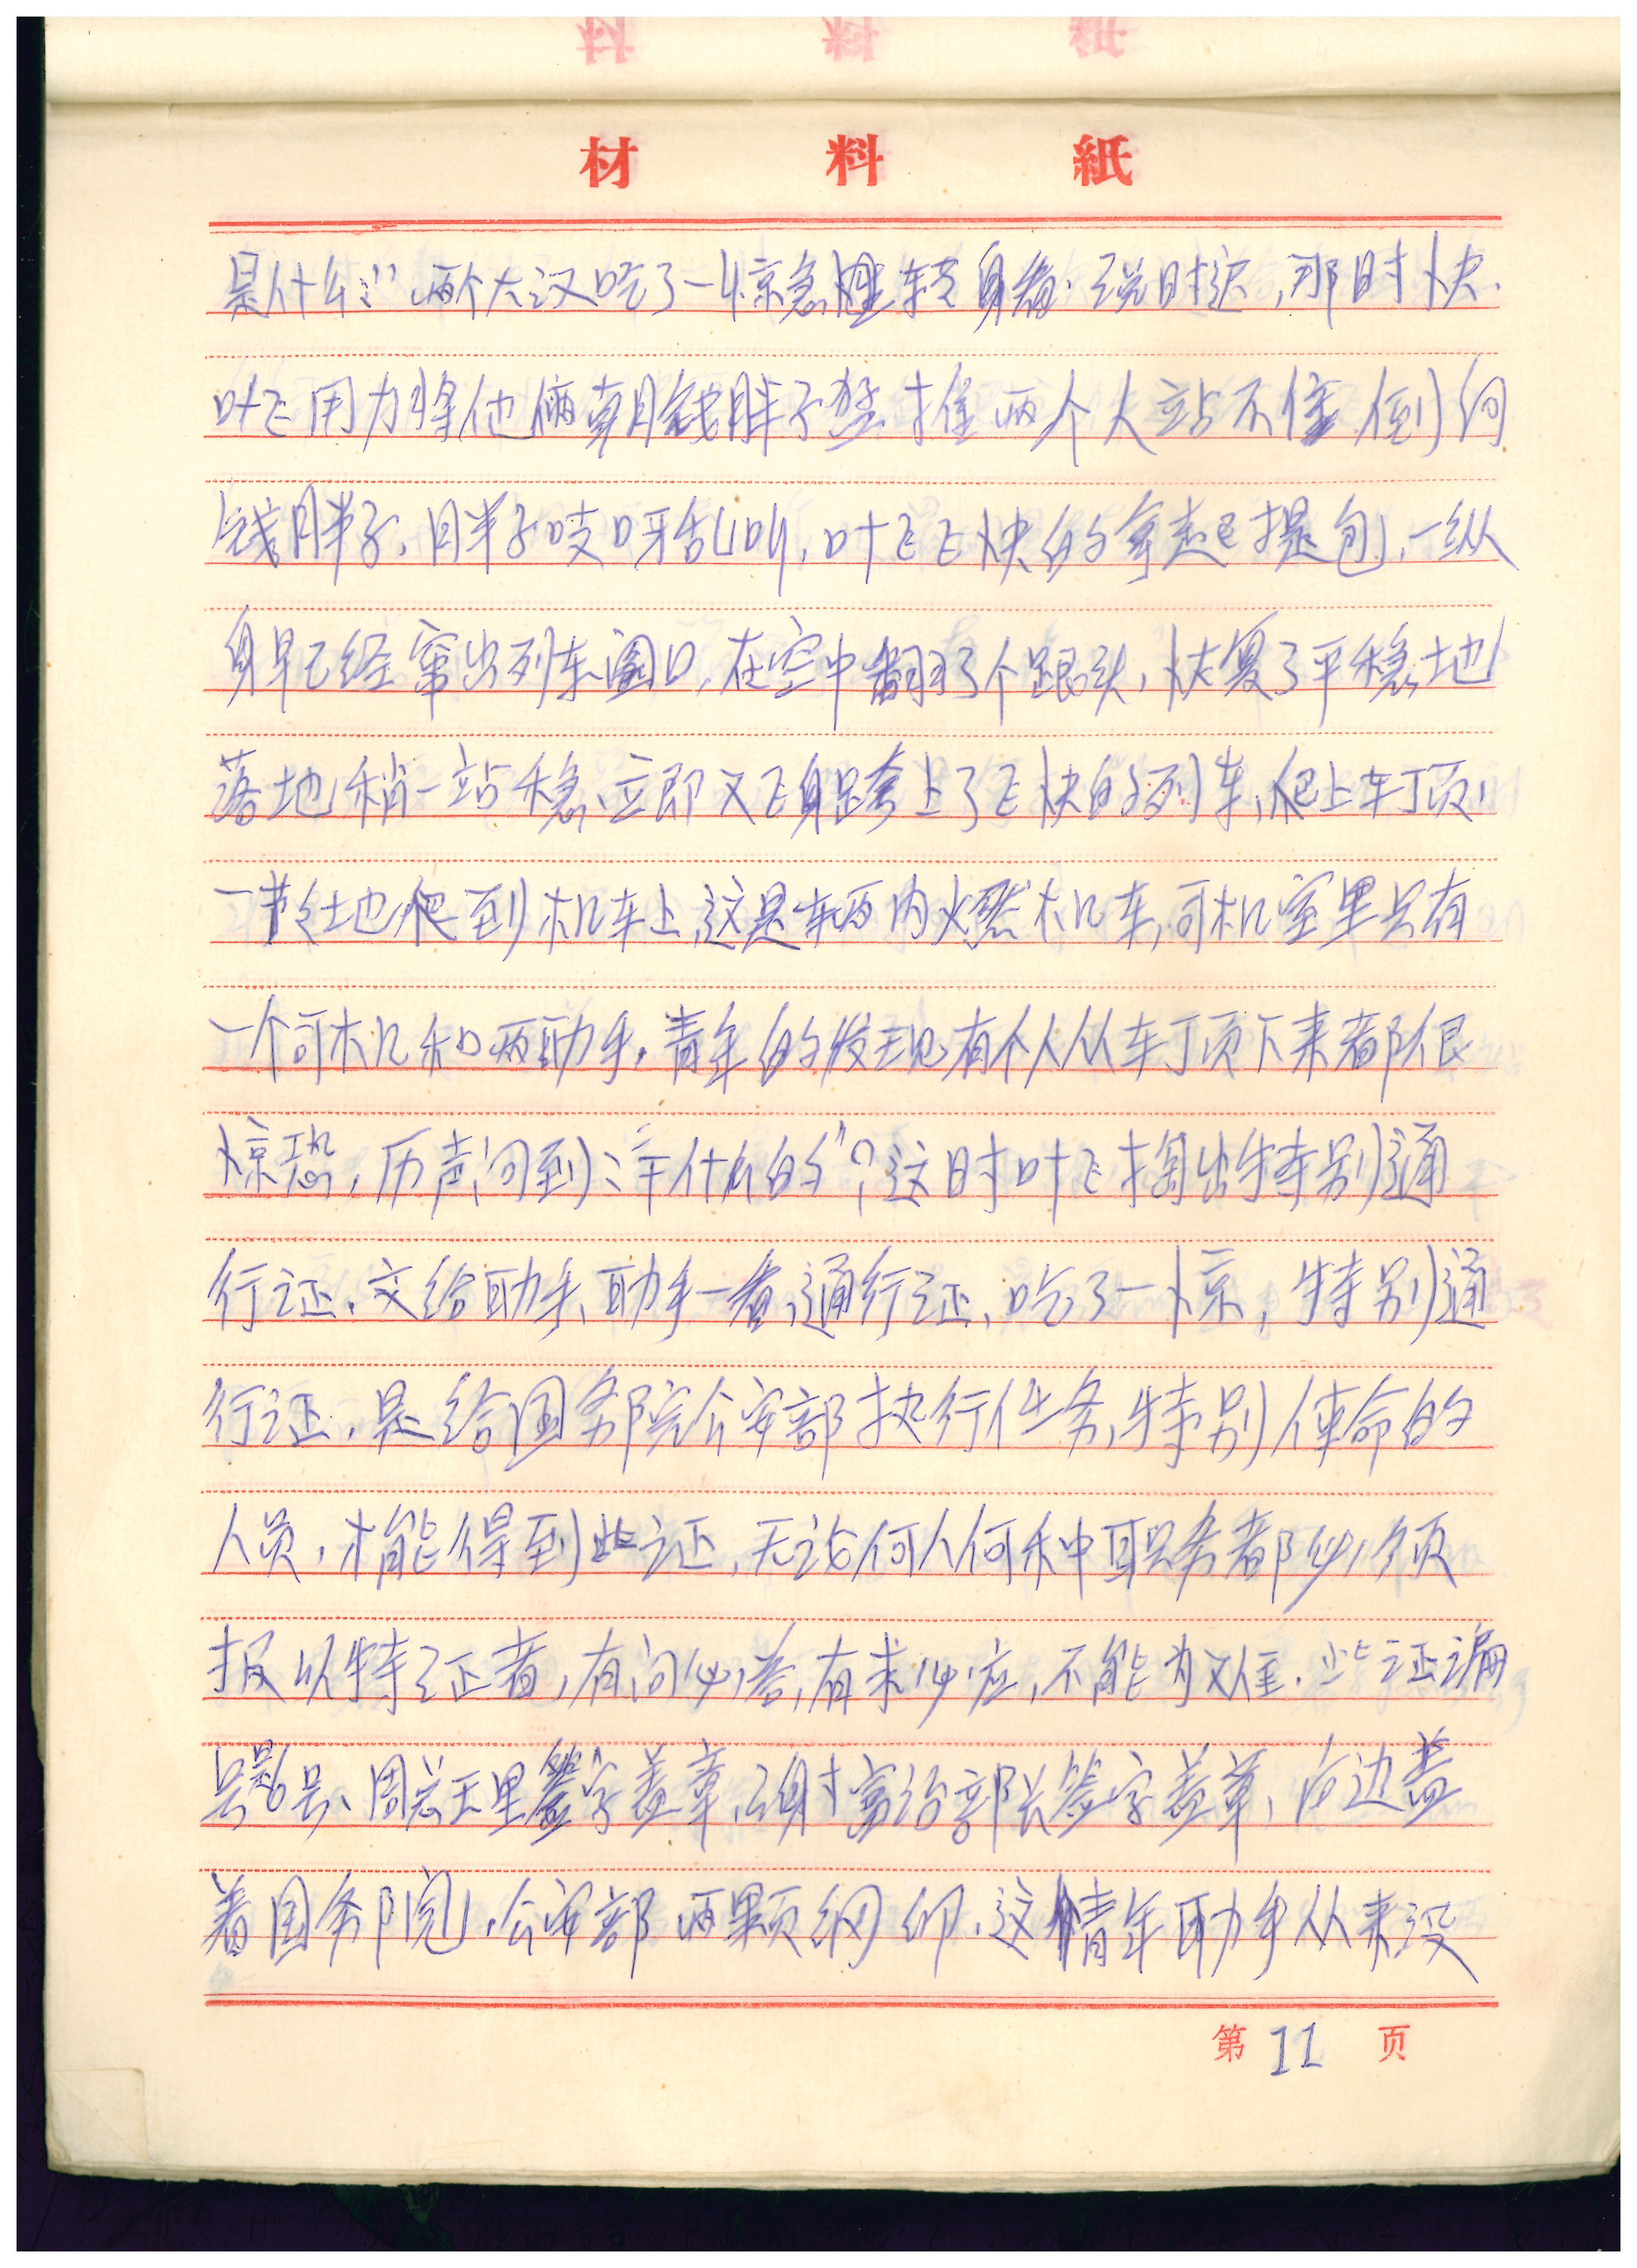 材料紙
是什么”两个大汉吃了一惊急忙转身看.说时迟,那时快.
叶飞用力将他俩朝钱胖子猛推两个人站不住倒向
钱胖子,胖子吱呀乱叫,叶飞飞快的拿起提包,一纵
身早已经窜出列车窗口,在空中翻了个跟头,恢复了平稳地
落地稍一站稳、立即又飞身跨上了飞快的列车,爬上车顶,
一节节地爬到机车上,这是东西内燃机车,司机室里只有
一个司机和两助手.青年的发现有个人从车顶下来都很
惊恐,历声问到:“干什么的”?这时叶飞掏出特别通
行证.交给助手、助手一看,通行证、吃了一惊,特别通
行证.是给国务院公安部执行任务,特别使命的
人员,才能得到此证,无论何人何种职务都必须
报以特证者,有问必答,有求必应,不能为难.此证编
号是6号、周总理签字盖章、谢富治部长签字盖章,右边盖
着国务院,公安部两颗钢印.这青年助手从来没
第11页